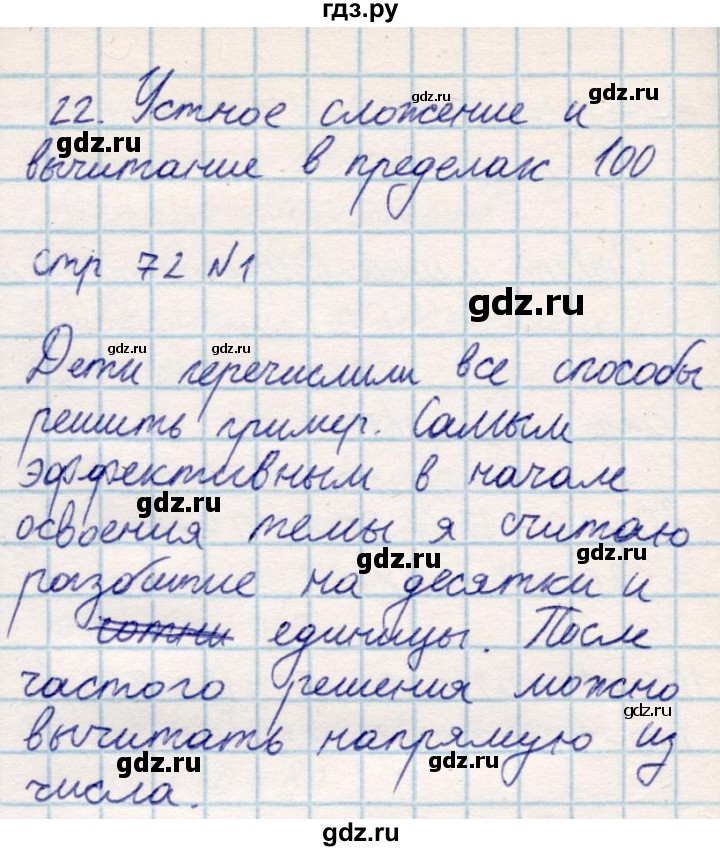 гдз.ру
22. Устное сложение и
вычитание в пределах 100
стр 72 №1
Дети перечислили все способы
решить пример. Самым
эффективным в начале
освоения темы я считаю
разбитие на десятки и
сотни единицы. После
частого решения можно
вычитать напрямую из
числа.
gdz.ru
gdz.ru
gdz.ru
gdz.ru
gdz.ru
gdz.ru
gdz.ru
gdz.ru
gdz.ru
gdz.ru
gdz.ru
gdz.ru
gdz.ru
gdz.ru